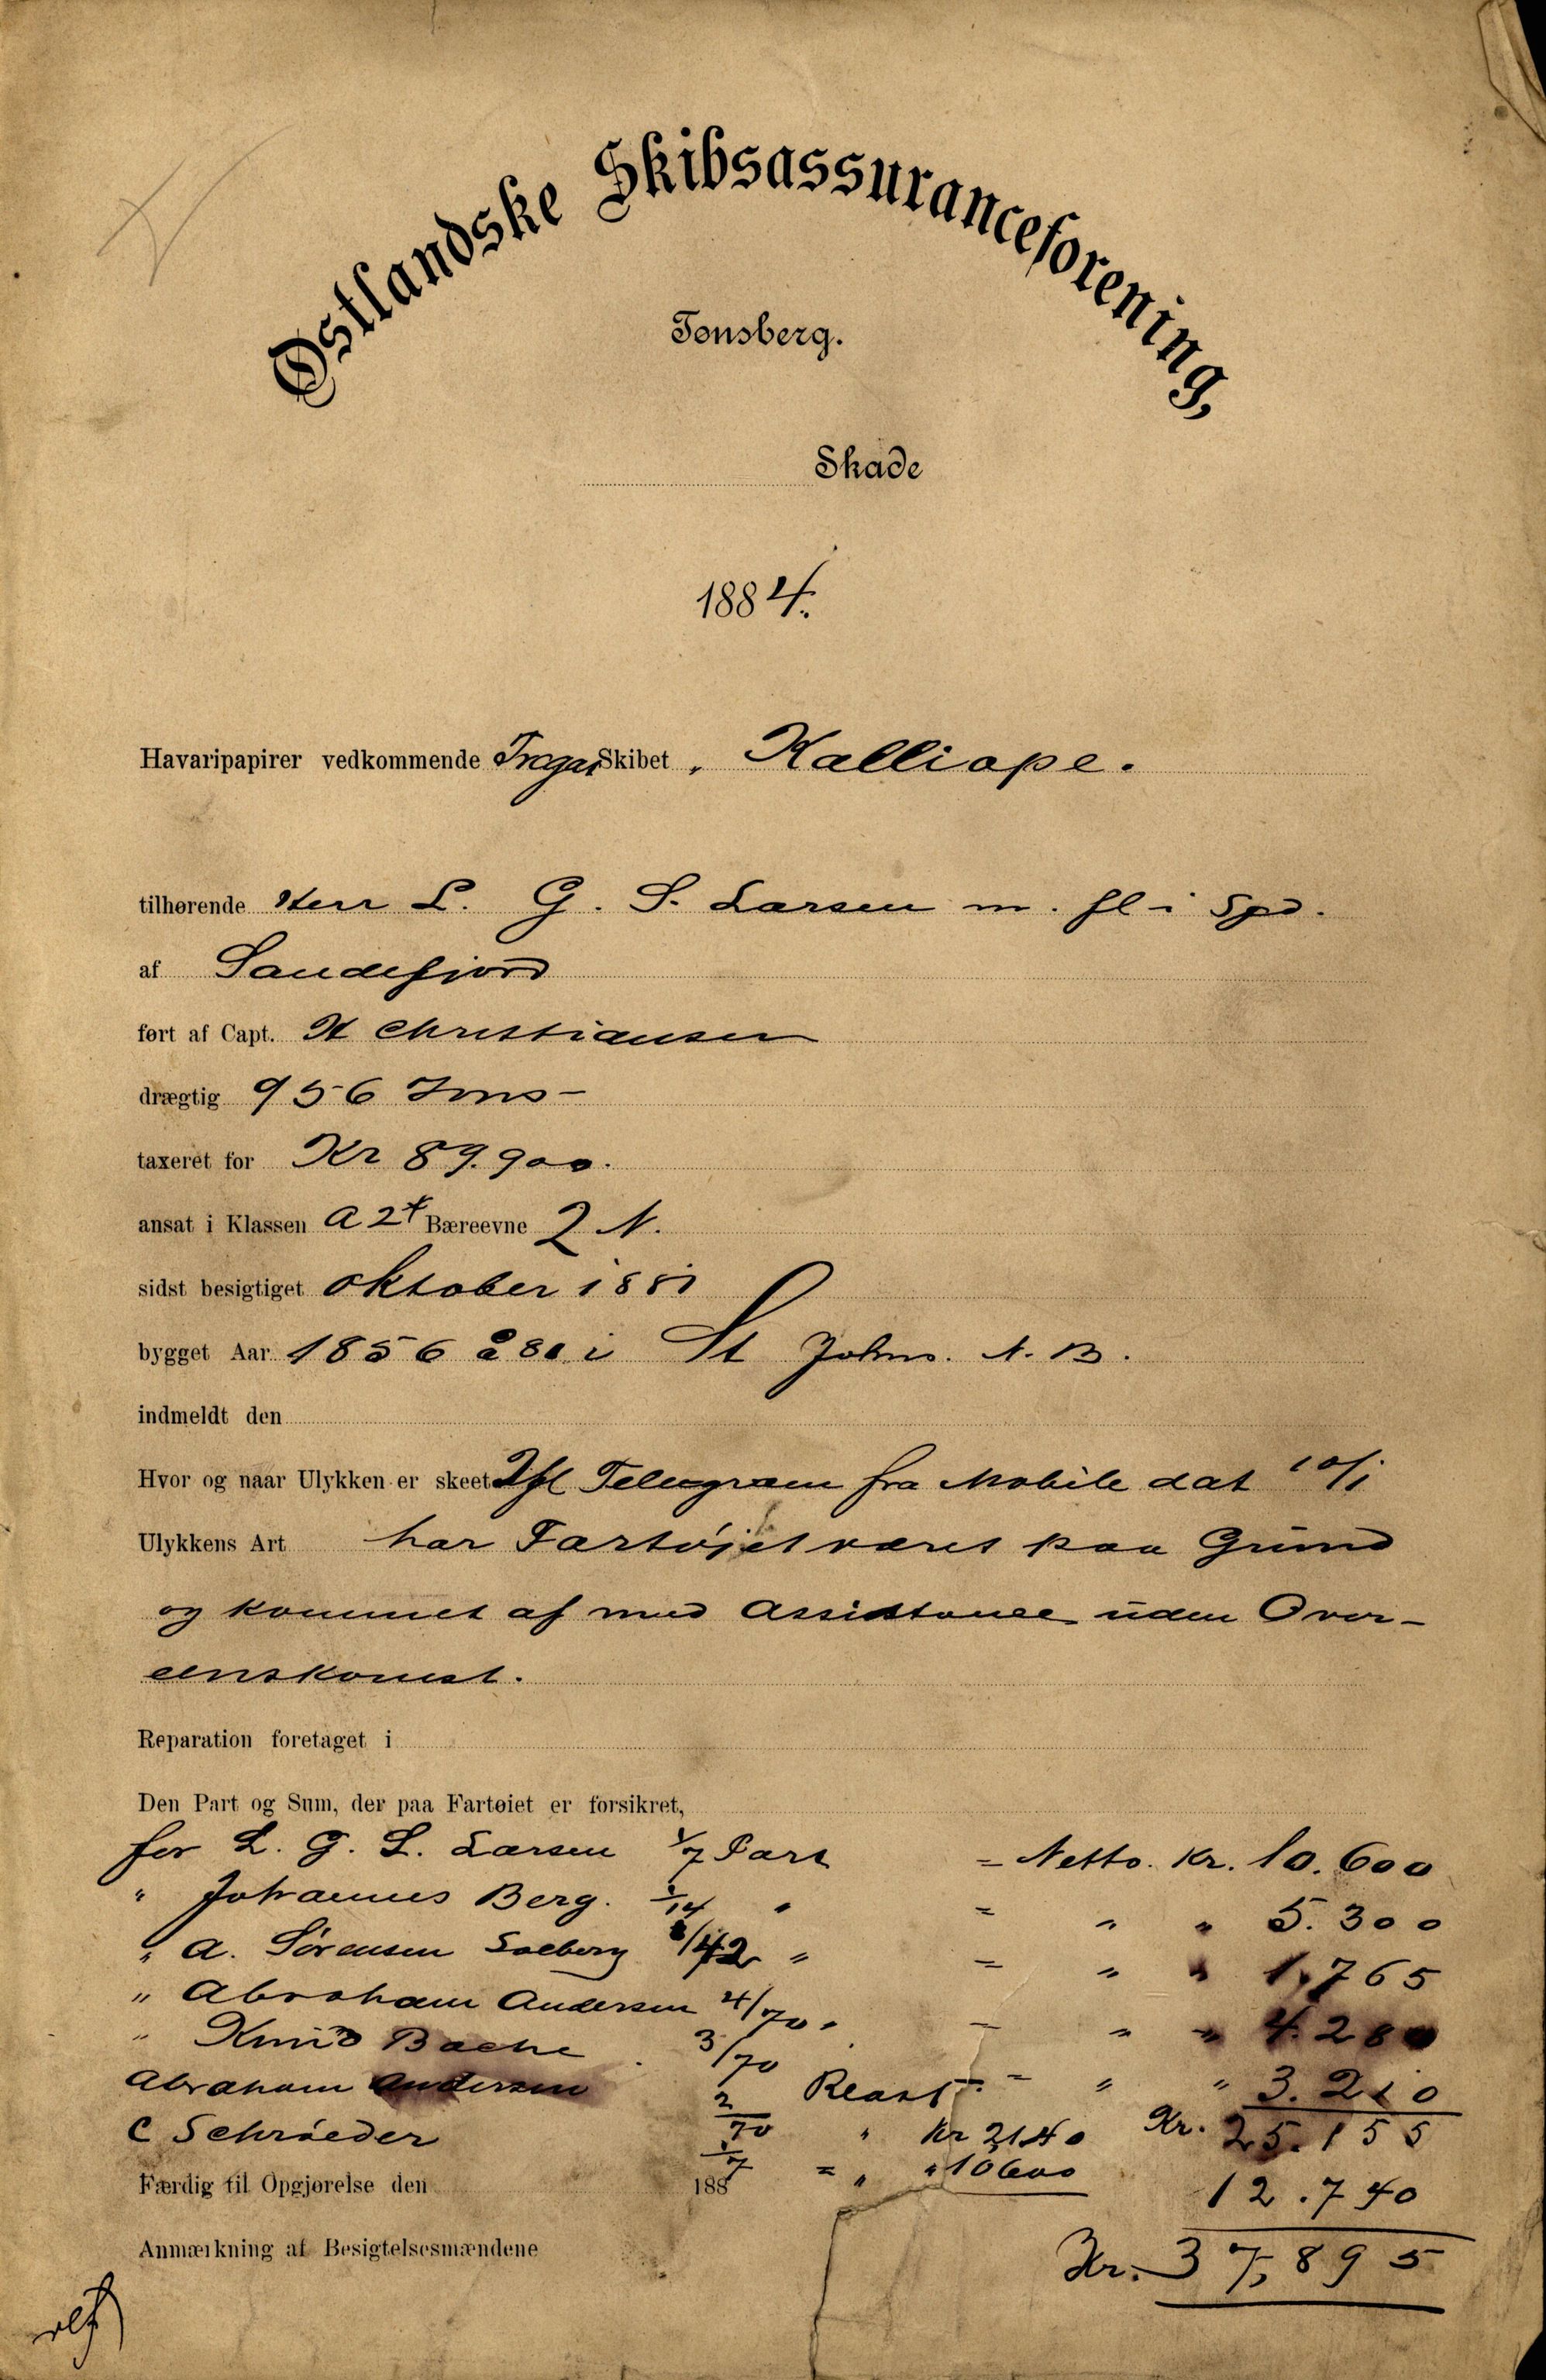 Østlandske Skibsassuranceforening,
Tønsberg.
Skade
1884.
Havaripapirer vedkommende Fregat Skibet „ Kalliope.
tilhørende Herr L. G. S. Larsen m. fl i Spd.
af Sandefjord
ført af Capt. H Christiansen
drægtig 956 Tons –
taxeret for Kr 89.900.
ansat i Klassen A 2* Bæreevne 2 N.
sidst besigtiget Oktober 1881
bygget Aar 1856 a 80 i St Johns. N. B.
indmeldt den
Hvor og naar Ulykken er skeet Ifl Telegram fra Mobile dat 10/1
Ulykkens Art har Fartøjet været paa Grund
og kommet af med Assistance uden Over-
enskomst.
Reparation foretaget i
Den Part og Sum, der paa Fartøiet er forsikret,
for L. G. S. Larsen 1/7 Part = Netto. Kr. 10.600
" Johannes Berg. 1/14 " = " " 5.300
" A. Sørensen Solberg 1/42 " = " " 1.765
" Abraham Andersen 4/70 " – " " 4.280
" Knud Bache 3/70 – " " 3.210
Abraham Andersen 2/70 " Kr 2140 Kr. 25.155
C Schrøeder 1/7 = " " 10600
12.740
Færdig til Opgjørelse den 188
Anmærkning af Besigtelsesmændene
Kr. 37,895